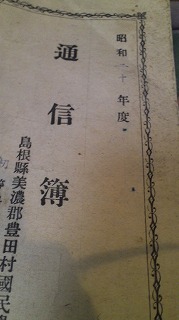 昭和二十年度
通信簿
島根縣美濃郡豊田村國民
初